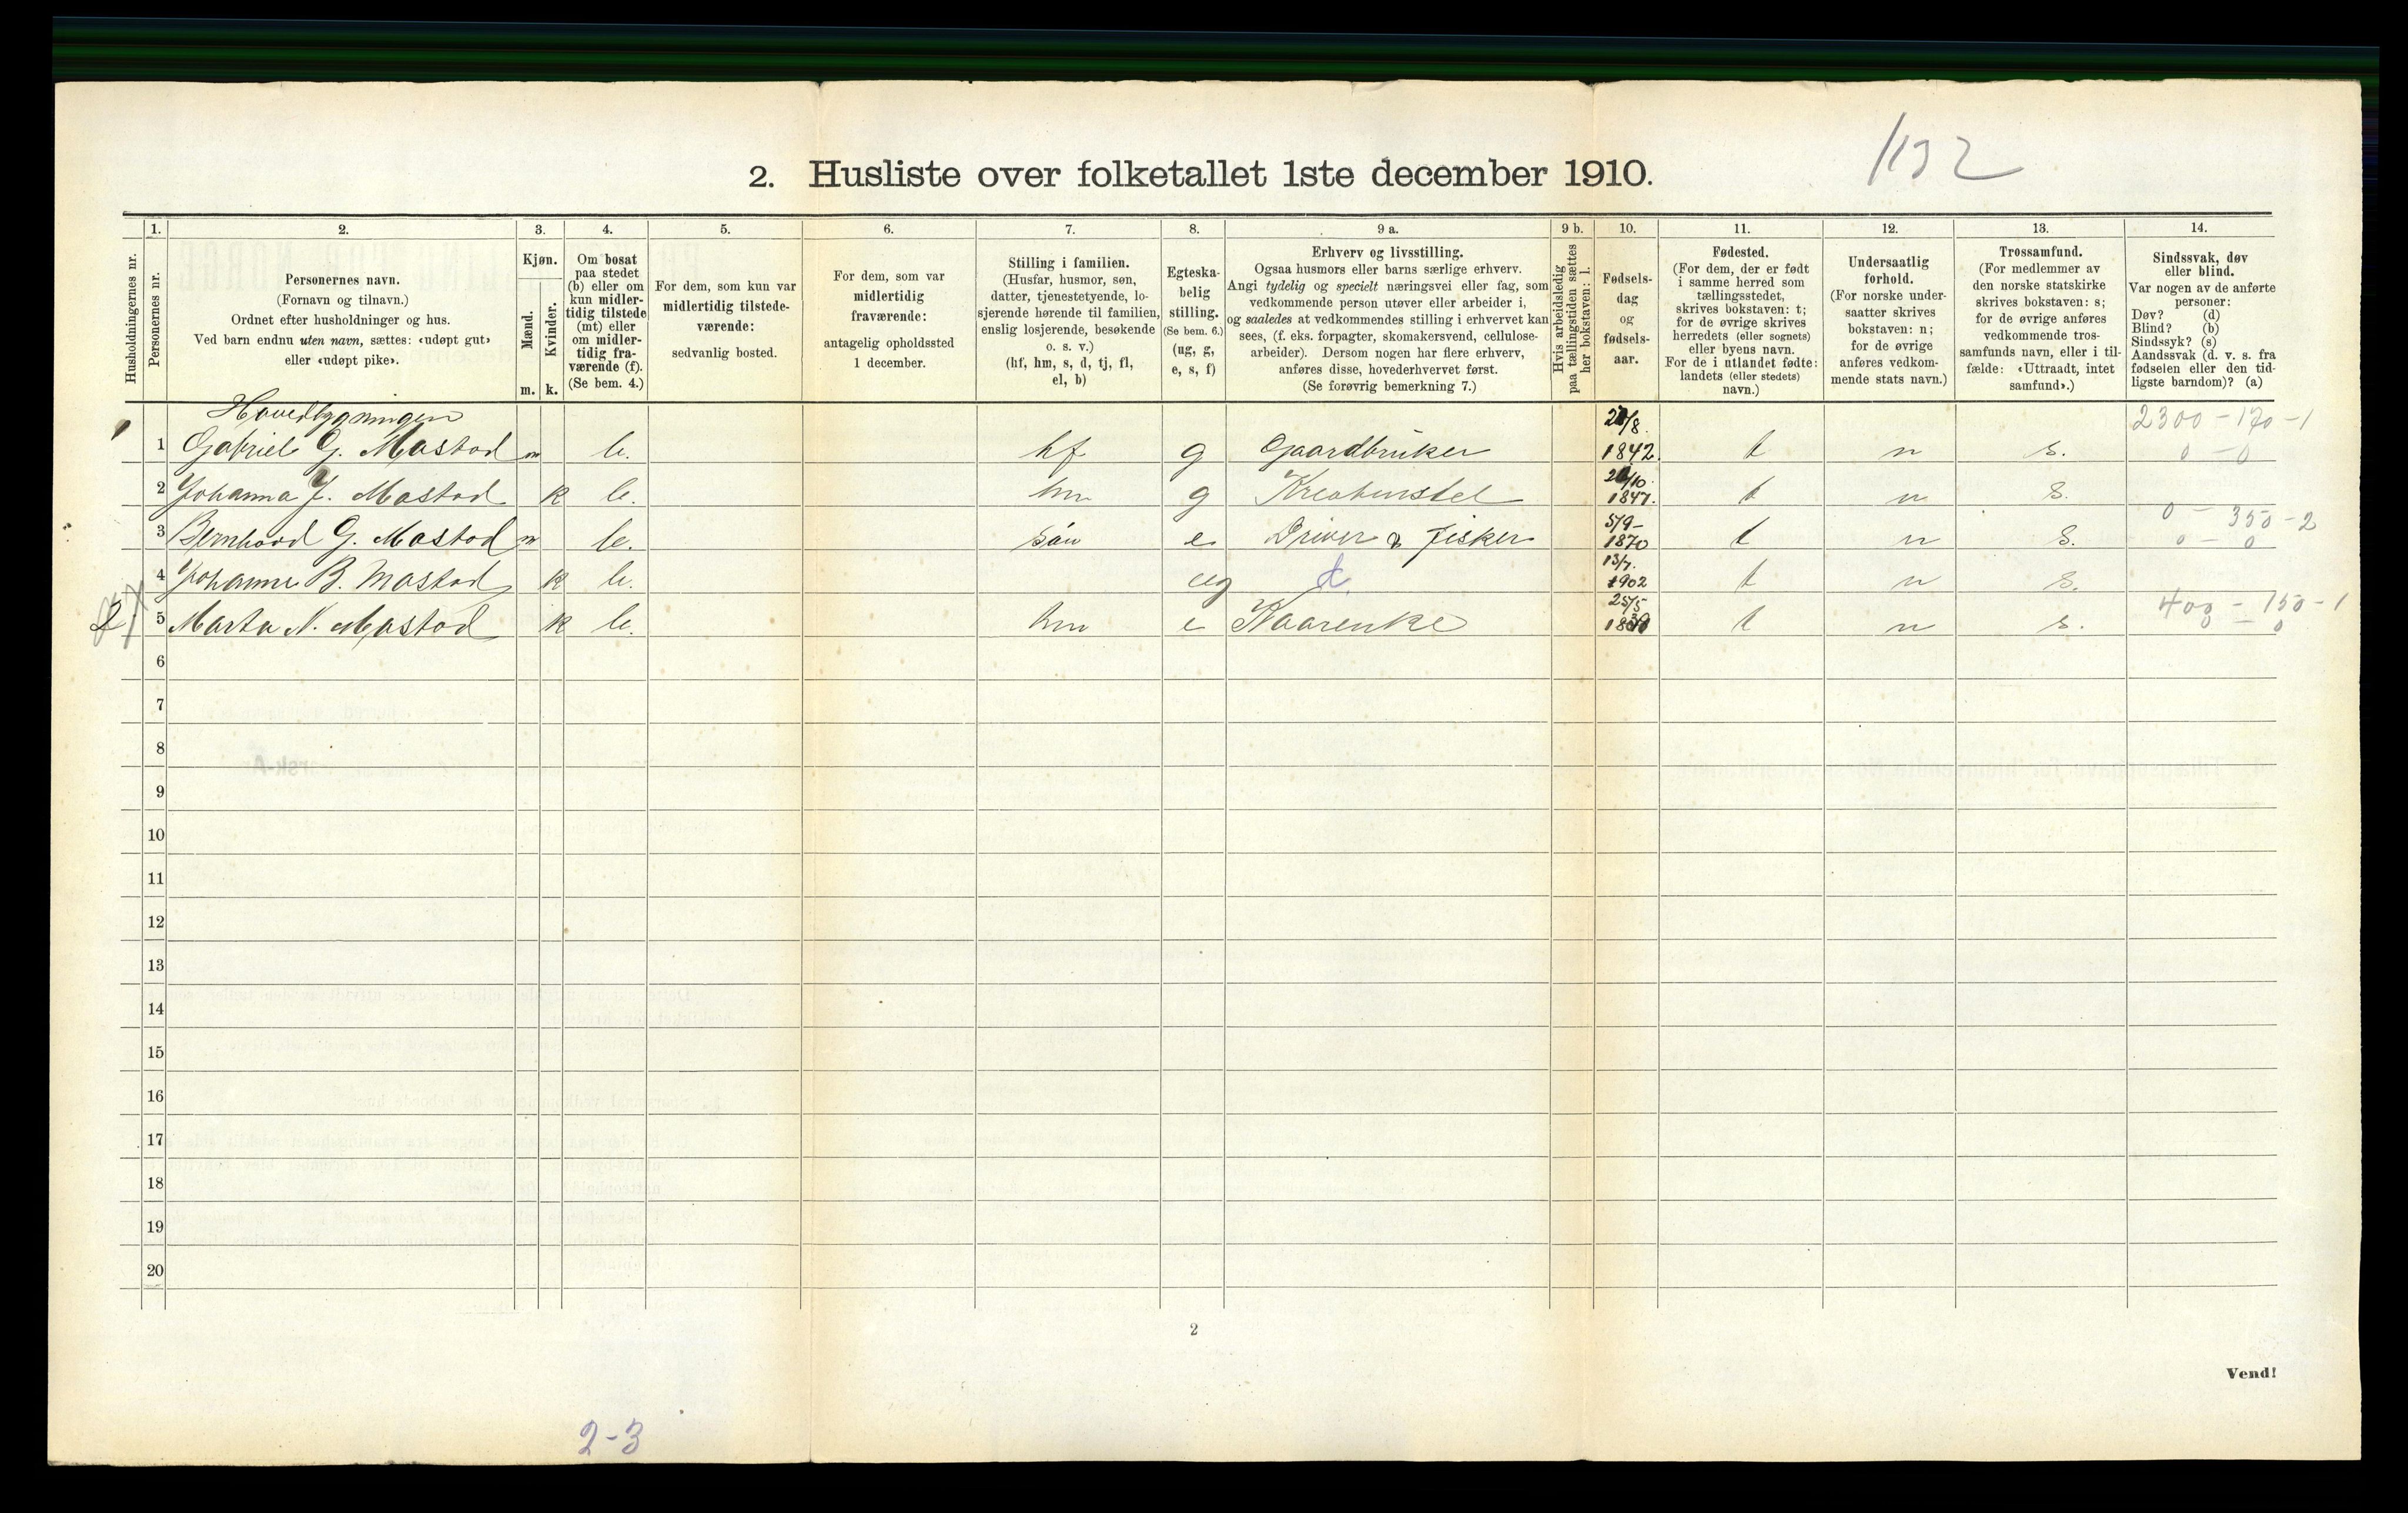 1132
2. Husliste over folketallet 1ste december 1910.
Husholdningernes nr.
1.
Personernes nr.
2.
Personernes navn.
(Fornavn og tilnavn.)
Ordnet efter husholdninger og hus.
Ved barn endnu uten navn, sættes: «udøpt gut»
eller «udøpt pike».
3.
Kjøn.
Mænd.
Kvinder.
m. k.
4.
Om bosat
paa stedet
(b) eller om
kun midler-
tidig tilstede
(mt) eller
om midler-
tidig fra-
værende (f).
(Se bem. 4.)
5.
For dem, som kun var
midlertidig tilstede-
værende:
sedvanlig bosted.
6.
For dem, som var
midlertidig
fraværende:
antagelig opholdssted
1 december.
7.
Stilling i familien.
(Husfar, husmor, søn,
datter, tjenestetyende, lo-
sjerende hørende til familien,
enslig losjerende, besøkende
o. s. v.)
(hf, hm, s, d, tj, fl,
el, b)
8.
Egteska-
belig
stilling.
(Se bem. 6.)
(ug, g,
e, s, f)
9 a.
Erhverv og livsstilling.
Ogsaa husmors eller barns særlige erhverv.
Angi tydelig og specielt næringsvei eller fag, som
vedkommende person utøver eller arbeider i,
og saaledes at vedkommendes stilling i erhvervet kan
sees, (f. eks. forpagter, skomakersvend, cellulose-
arbeider). Dersom nogen har flere erhverv,
anføres disse, hovederhvervet først.
(Se forøvrig bemerkning 7.)
9 b.
Hvis arbeidsledig
paa tællingstiden sættes
her bokstaven: l.
10.
Fødsels-
dag
og
fødsels-
aar.
11.
Fødested.
(For dem, der er født
i samme herred som
tællingsstedet,
skrives bokstaven: t;
for de øvrige skrives
herredets (eller sognets)
eller byens navn.
For de i utlandet fødte:
landets (eller stedets)
navn.)
12.
Undersaatlig
forhold.
(For norske under-
saatter skrives
bokstaven: n;
for de øvrige
anføres vedkom-
mende stats navn.)
13.
Trossamfund.
(For medlemmer av
den norske statskirke
skrives bokstaven: s;
for de øvrige anføres
vedkommende tros-
samfunds navn, eller i til-
fælde: «Uttraadt, intet
samfund».)
14.
Sindssvak, døv
eller blind.
Var nogen av de anførte
personer:
Døv? (d)
Blind? (b)
Sindssyk? (s)
Aandssvak (d. v. s. fra
fødselen eller den tid-
ligste barndom)? (a)
Hovedbygningen
2300 - 170 - 1
1 Gabriel G. Mastad m b. hf g Gaardbruker /8. 1842. t n s. 0 - 0
2 Johanna J. Mastad k b. hm g Kreaturstel /10. 1847. t n s.
0 - 350 - 2
3 Bernhard G. Mastad m b. søn e Driver & Fisker 5/9- 1870 t n s. 0 - 0
4 Johanne B. Mastad k b. ug d. 13/7. 1902 t n s.
400 - 150 - 1
2. 5 Marta N. Mastad k b. hm e Kaarenke 25/5 t n s. 0 - 0
6
7
8
9
10
11
12
13
14
15
16
17
18
19
20
2
Vend!
2-3